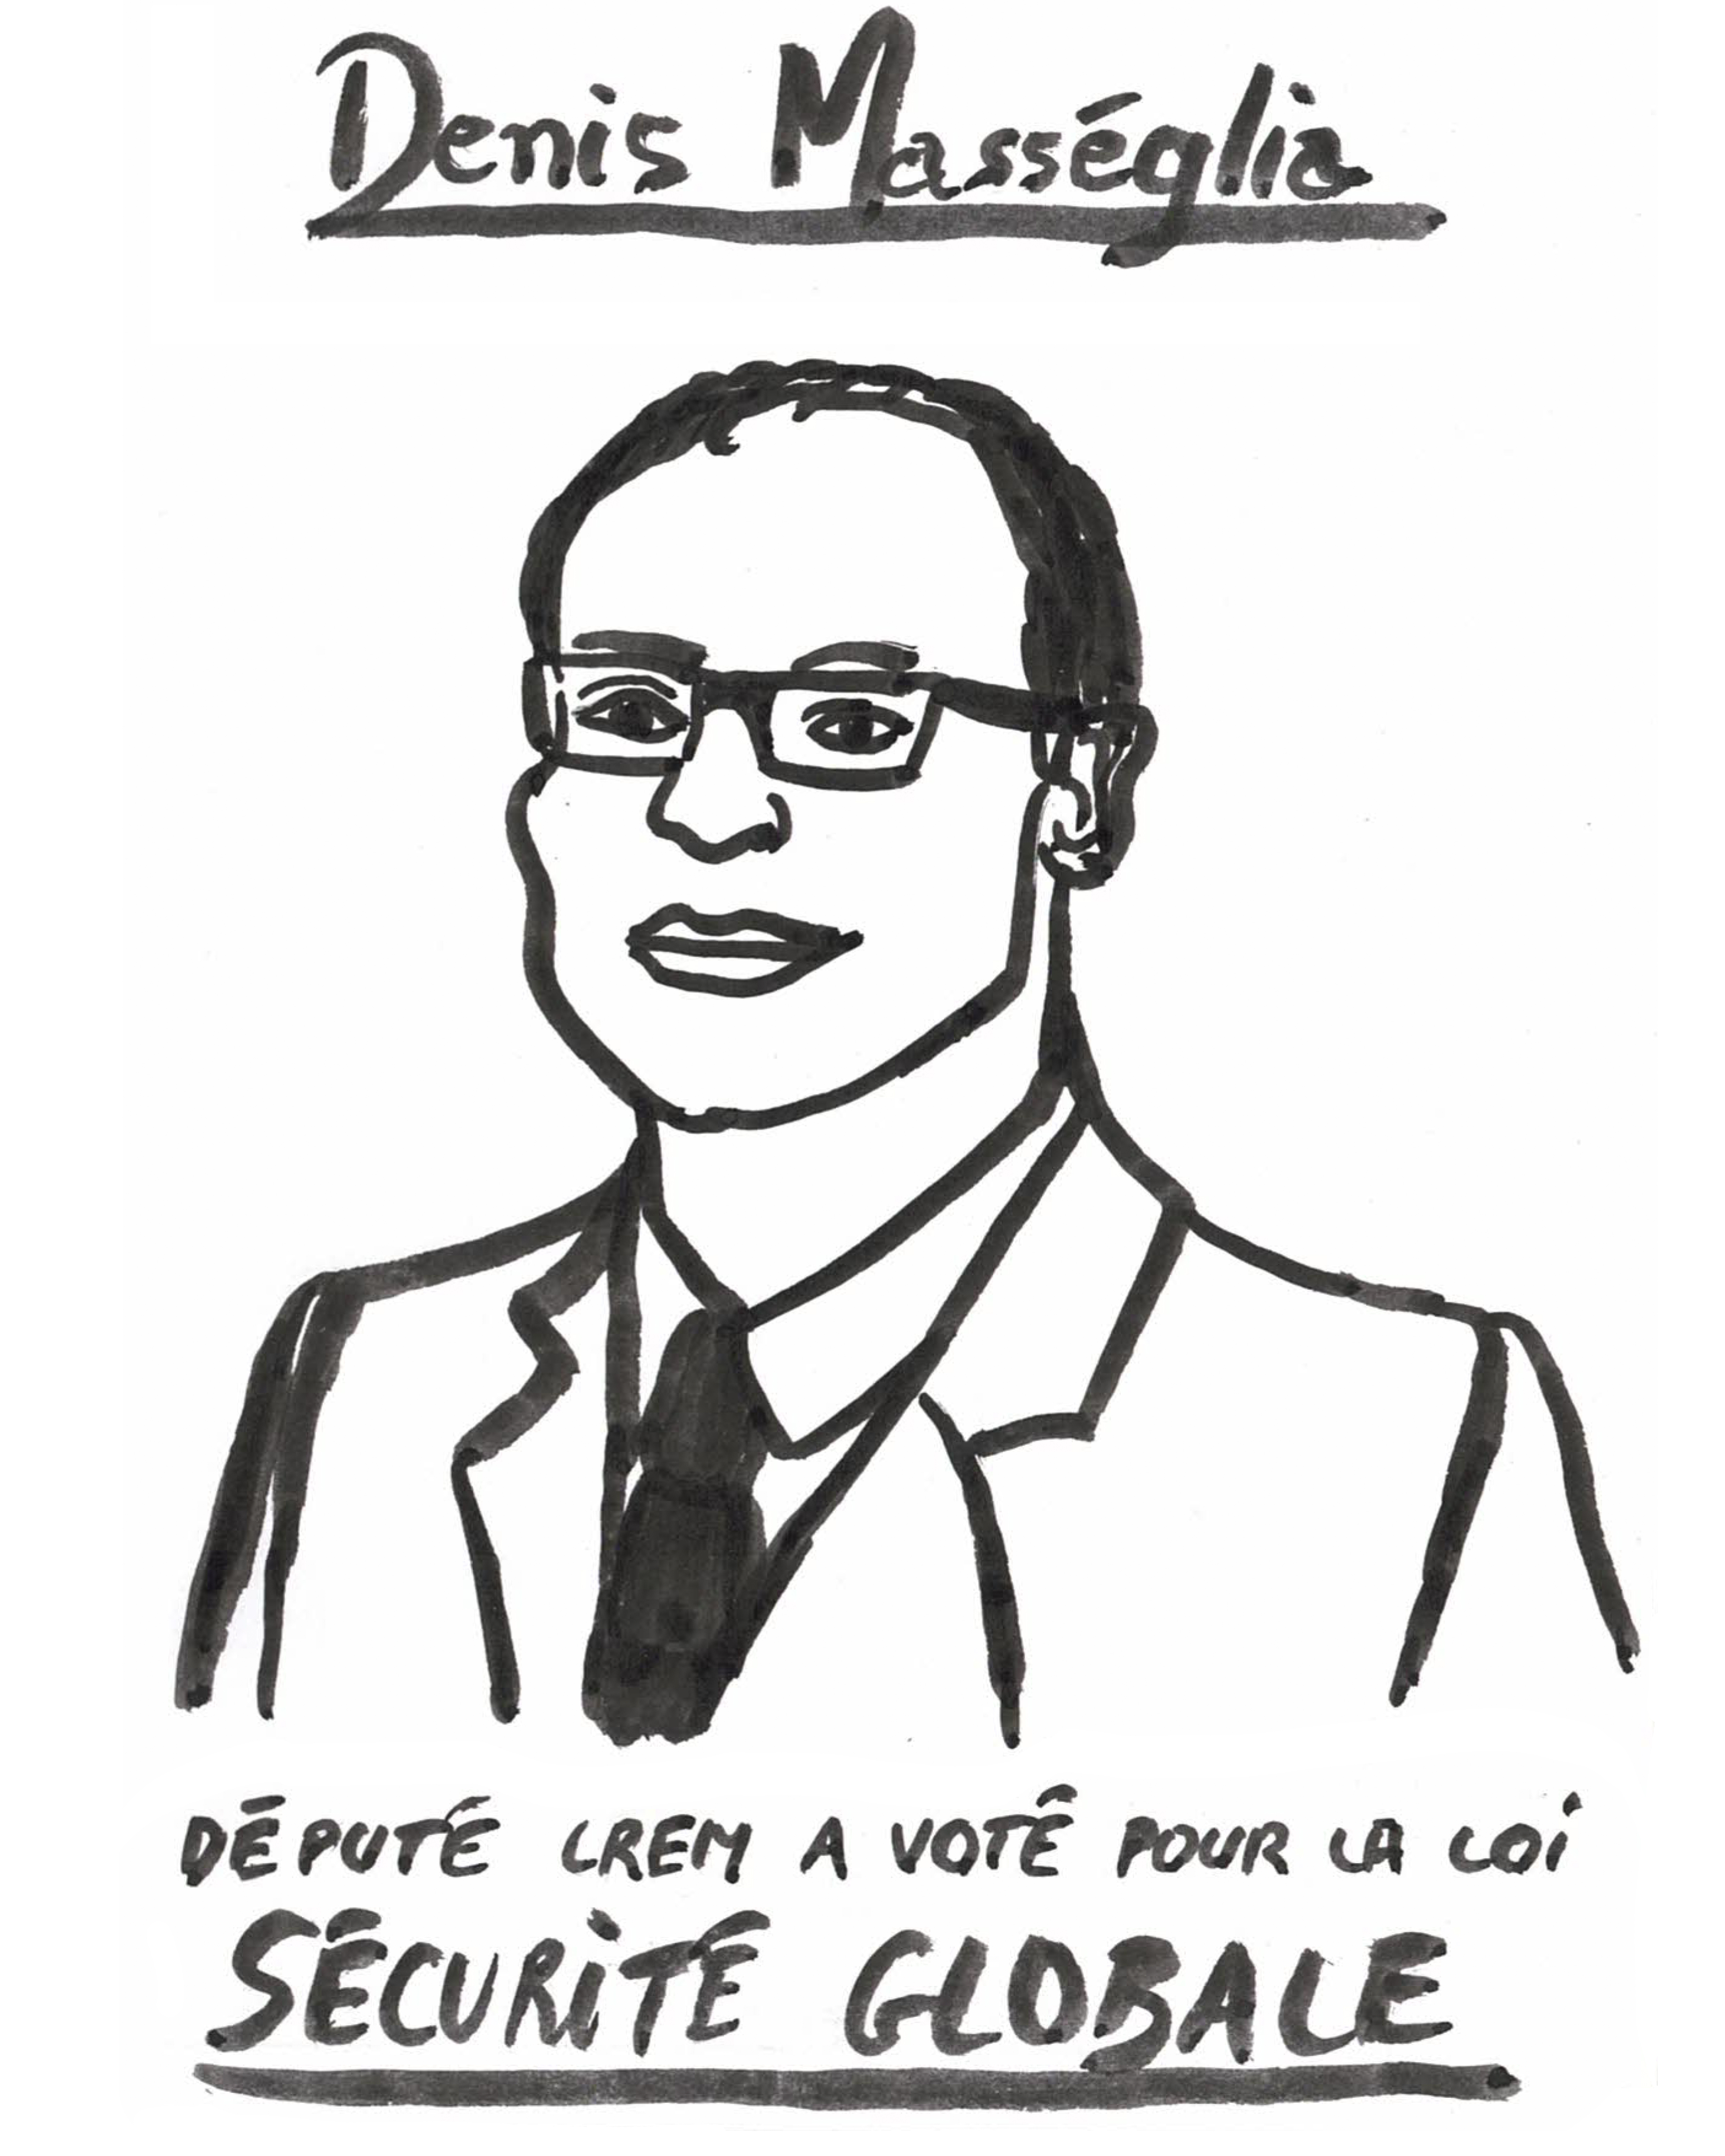 Denis Masséglia
DÉPUTÉ LREM A VOTÉ POUR LA LOI
SÉCURITÉ GLOBALE